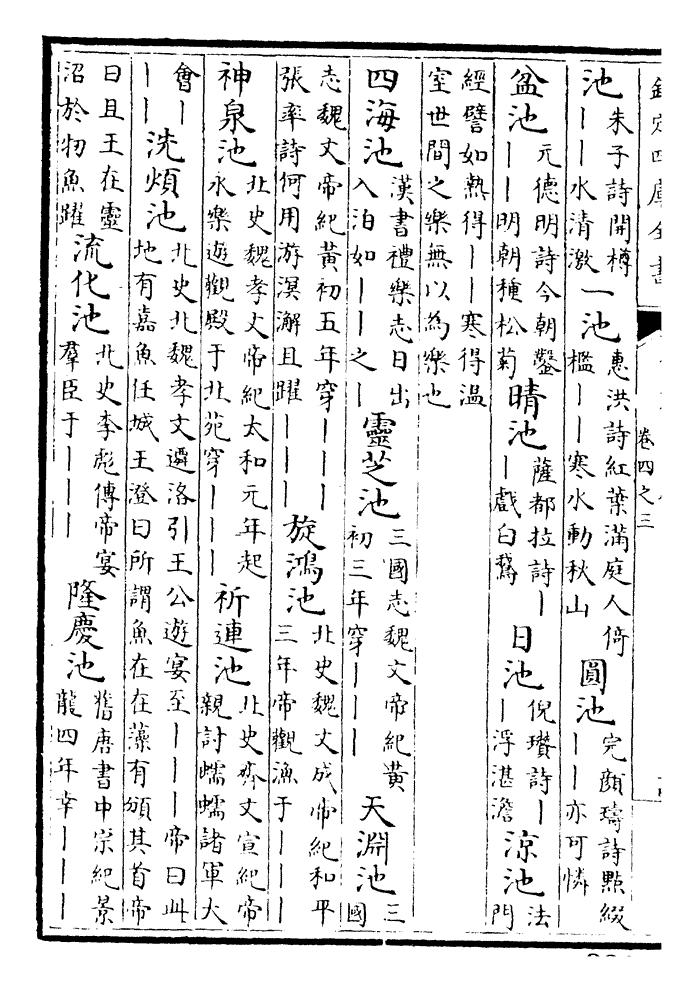 欽定四庫全書
卷四之三
池 朱子詩開樽｜｜水清激 一池 惠洪詩紅葉滿庭人倚檻｜｜寒水動秋山 圓池 完顔璹詩點綴｜｜亦可憐
盆池 元德明詩今朝鑿｜｜明朝種松菊 晴池 薩都拉詩｜｜戲白鵞 日池 倪瓚詩｜｜浮湛澹 涼池 法門
經譬如熱得｜｜寒得温室世間之樂無以為樂也
四海池 漢書禮樂志日出入泊如｜｜之｜ 靈芝池 三國志魏文帝紀黃初三年穿｜｜｜ 天淵池 三國
志魏文帝紀黃初五年穿｜｜｜張率詩何用游溟澥且躍｜｜｜ 旋鴻池 北史魏文成帝紀和平三年帝觀漁于｜｜｜
神泉池 北史魏孝文帝紀太和元年起永樂遊觀殿于北苑穿｜｜｜ 祈連池 北史齊文宣紀帝親討蠕蠕諸軍大
會｜｜｜ 洗煩池 北史北魏孝文遷洛引王公遊宴至｜｜｜帝曰此地有嘉魚任城王澄曰所謂魚在在藻有頒其首帝
曰且王在靈沼於牣魚躍 流化池 北史李彪傳帝宴羣臣于｜｜｜ 隆慶池 舊唐書中宗紀景龍四年幸｜｜｜